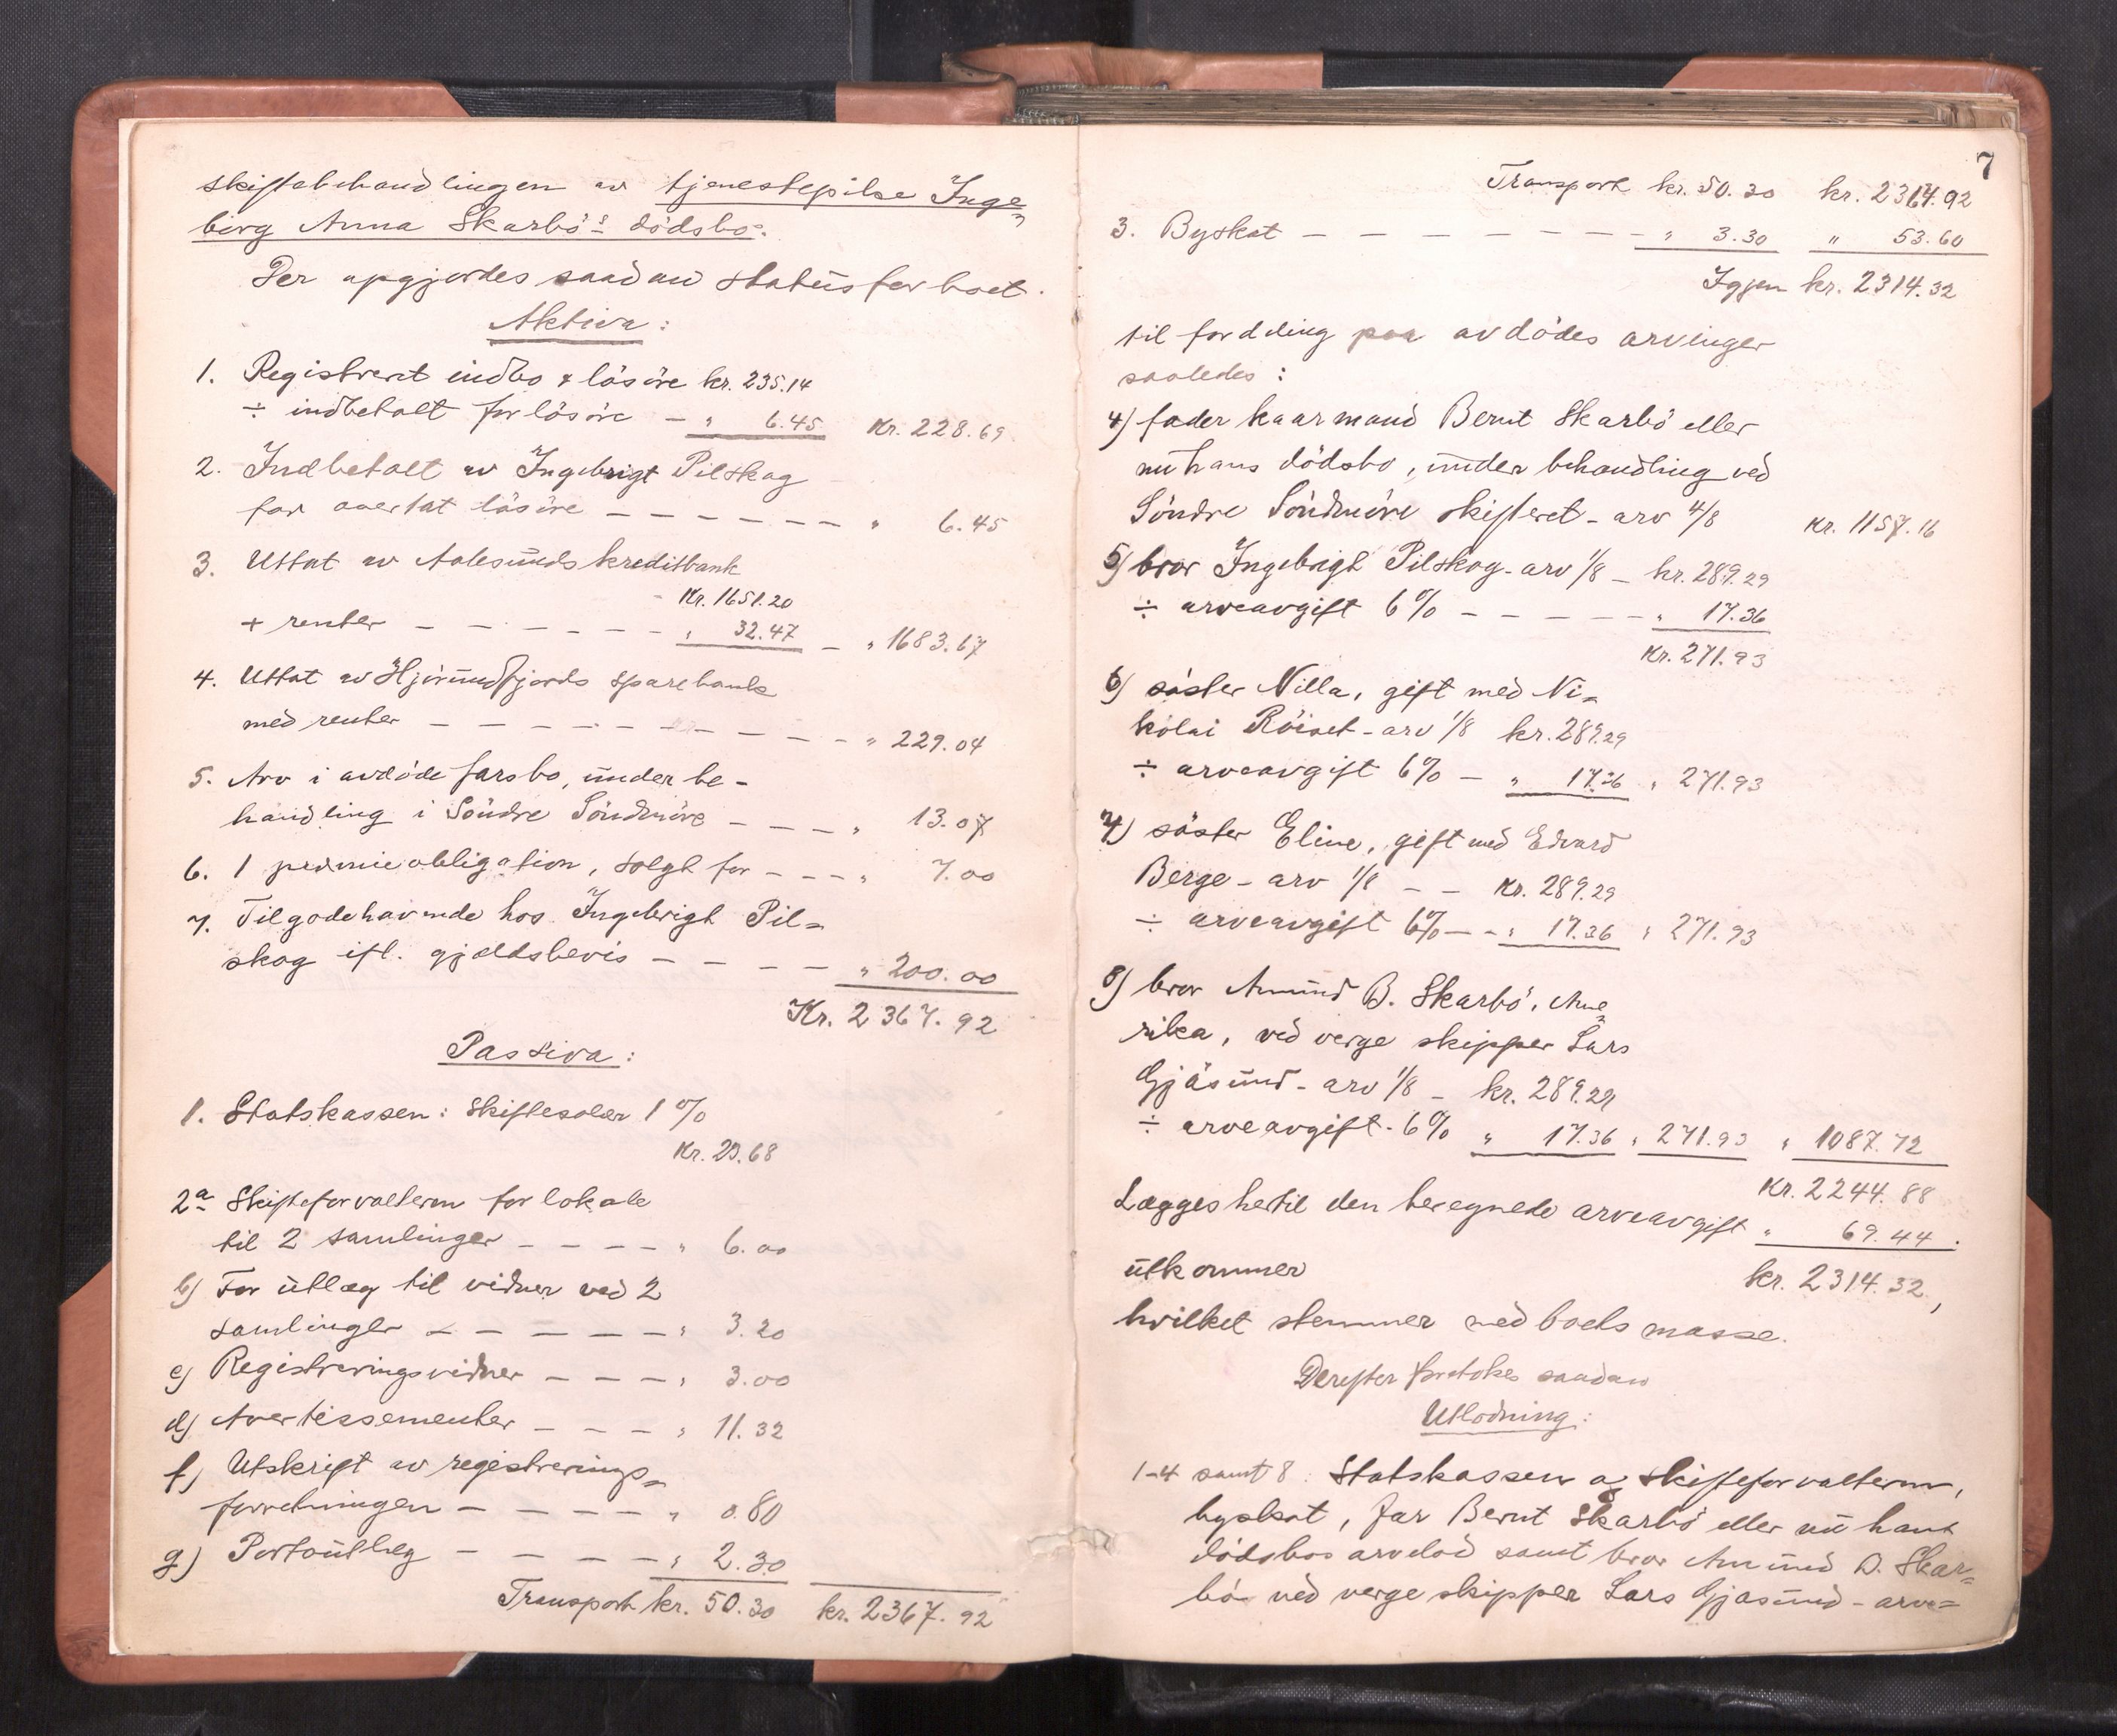 skiftebehandlingen av tjenestepike Inge-
borg Anna Skarbö's dödsbo.
Der opgjordes saadan status for boet.
Aktiva:
1. Registreret indbo & lösöre kr. 235.14
÷ indbetalt for lösöre - " 6.45 Kr. 228.69
2. Indbetalt av Ingebrigt Pilskog
for overtat lösöre - - - - - - - " 6.45
3. Uttat av Aalesunds kreditbank
- Kr. 1651.20
+ renter - - - - - - " 32.47 - " 1683.67
4. Uttat av Hjörundfjords sparebank
med renter - - - - - - - - - - - " 229.04
5. Arv i avdöde farsbo, under be-
handling i Söndre Söndmöre - - - - " 13.07
6. 1 premieobligation, solgt for - - - " 7.00
7. Tilgodehavende hos Ingebrigt Pil-
skog ifl. gjældsbevis - - - - - " 200.00
Kr. 2367.92
Passiva:
1. Statskassen: Skiftesalær 1 %
Kr. 23.68
2a Skifteforvalteren for lokale
til 2 samlinger - - - - - " 6.00
b) For utlæg til vidner ved 2
samlinger - - - - - - " 3.20
c) Registreringsvidner - - - - " 3.00
d) Avertissementer - - - - " 11.32
f) Utskrift av registrerings-
forretningen - - - - - " 0.80
g) Portoutlæg - - - - - " 2.30
Transport kr. 50.30 kr. 2367.92
7
Transport kr. 50.30 kr. 2367.92
3. Byskat - - - - - - - - " 3.30 " 53.60
Igjen kr. 2314.32
til fordeling paa avdödes arvinger
saaledes:
4) fader kaarmand Bernt Skarbö eller
nu hans dödsbo, under behandling ved
Söndre Söndmöre skifteret - arv 4/8 Kr. 1157.16
5) bror Ingebrigt Pilskog - arv 1/8 - kr. 289.29
÷ arveavgift 6% - - - - - " 17.36
Kr. 271.93
6) söster Nilla, gift med Ni-
kolai Röiset - arv 1/8 kr. 289.29
÷ arveavgift 6% - " 17.36 " 271.93
7) söster Eline, gift med Edvard
Berge - arv 1/8 - - Kr. 289.29
÷ arveavgift 6% - - " 17.36 " 271.93
8) bror Amund B. Skarbö, Ame-
rika, ved verge skipper Lars
Gjösund - arv 1/8 - kr. 289.29
÷ arveavgift - 6% " 17.36 " 271.93 " 1087.72
Kr. 2244.88
Lægges hertil den beregnede arveavgift " 69.44.
utkommer kr. 2314.32,
hvilket stemmer med boets masse.
Derefter foretokes saadan
Utlodning:
1-4 samt 8: Statskassen og skifteforvalteren,
byskat, far Bernt Skarbö eller nu hans
dödsbos arvelod samt bror Amund B. Skar-
bö ved verge skipper Lars Gjösund - arve-